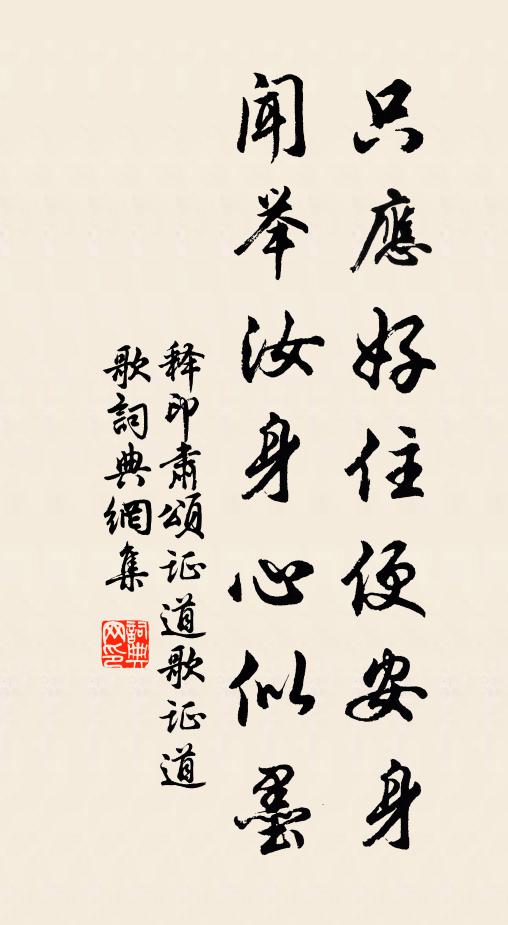 只應好住便安身
聞举汝身心似墨
释印肃頌证道歌证道
歌詞典網集
詞典网印